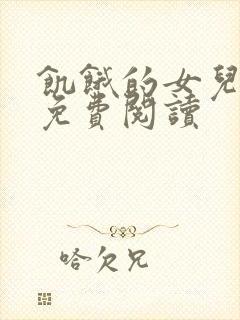 飢餓的女兒
免費閱讀
哈欠兄